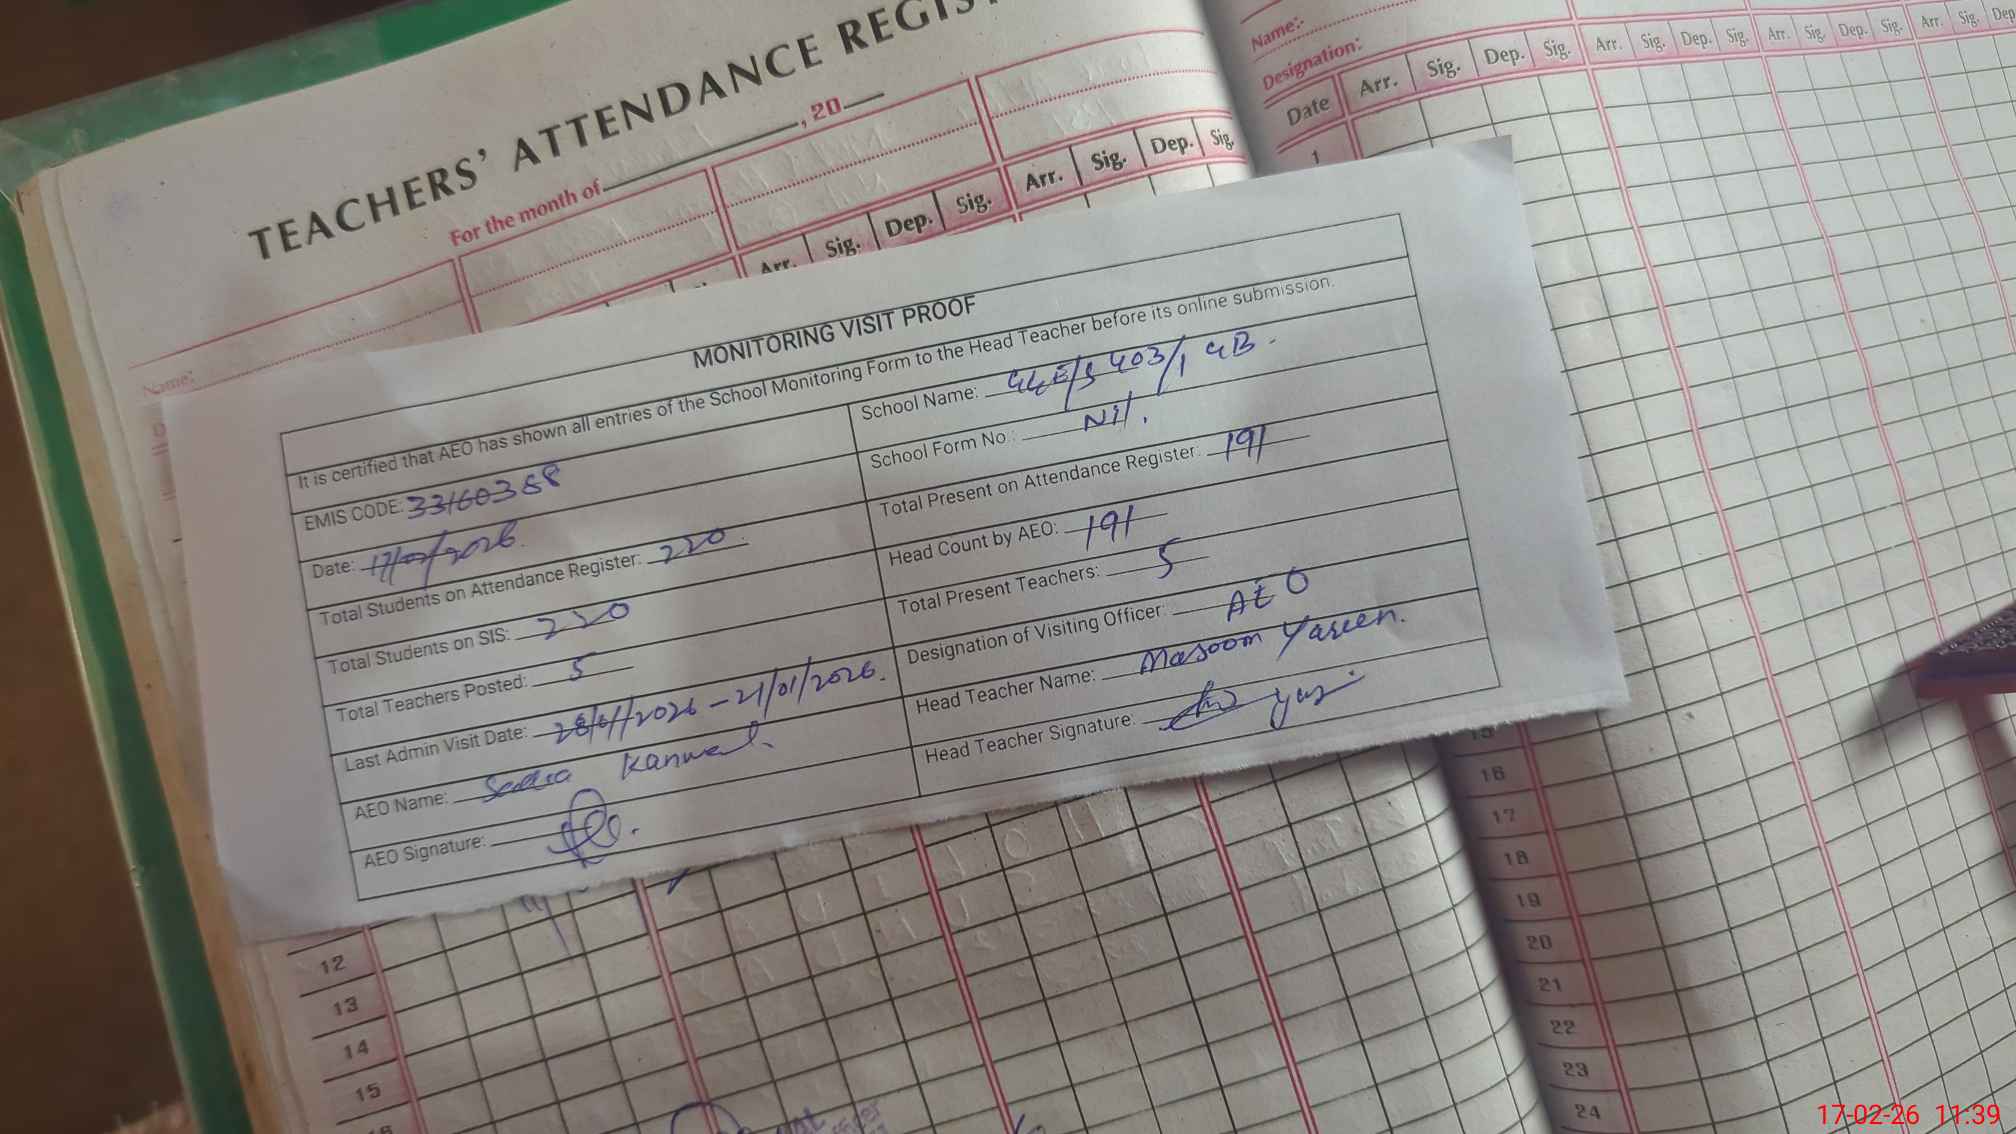 TEACHERS' ATTENDANCE REGIS
For the month of , 20
Arr. Sig. Dep. Sig. Arr. Sig. Dep. Sig.
Name:
Name:-
Designation:
Date Arr. Sig. Dep. Sig. Arr. Sig. Dep. Sig. Arr. Sig. Dep. Sig. Arr. Sig. Dep
1
MONITORING VISIT PROOF
It is certified that AEO has shown all entries of the School Monitoring Form to the Head Teacher before its online submission.
EMIS CODE: 33160388
School Name: 403/1 GB.
Date: 17/02/2026
School Form No.: Nil.
Total Students on Attendance Register: 220
Total Present on Attendance Register: 191
Total Students on SIS: 220
Head Count by AEO: 191
Total Teachers Posted: 5
Total Present Teachers: 5
Last Admin Visit Date: 28/01/2026 - 21/01/2026.
Designation of Visiting Officer: AEO
AEO Name: Sadia Kanwal.
Head Teacher Name: Masoom Yaseen.
AEO Signature:
Head Teacher Signature:
12
13
14
15
16
15
16
17
18
19
20
21
22
23
24
17-02-26 11:39